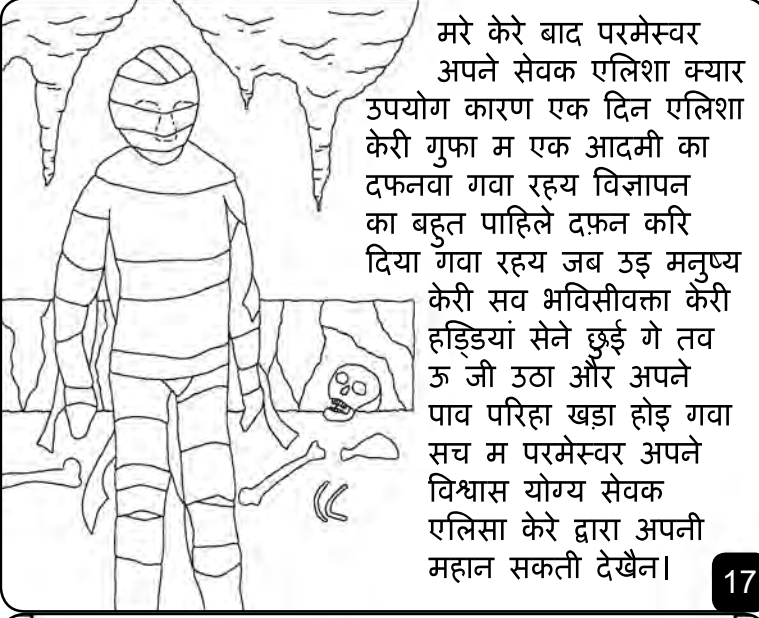 मरे केरे बाद परमेस्वर
अपने सेवक एलिशा क्यार
उपयोग कारण एक दिन एलिशा
केरी गुफा म एक आदमी का
दफनवा गवा रहय विज्ञापन
का बहुत पाहिले दफ़न करि
दिया गवा रहय जब उइ मनुष्य
केरी सव भविसीवक्ता केरी
हड्डियां सेने छुई गे तव
ऊ जी उठा और अपने
पाव परिहा खड़ा होइ गवा
सच म परमेस्वर अपने
विश्वास योग्य सेवक
एलिसा केरे द्वारा अपनी
महान सकती देखैन।
17